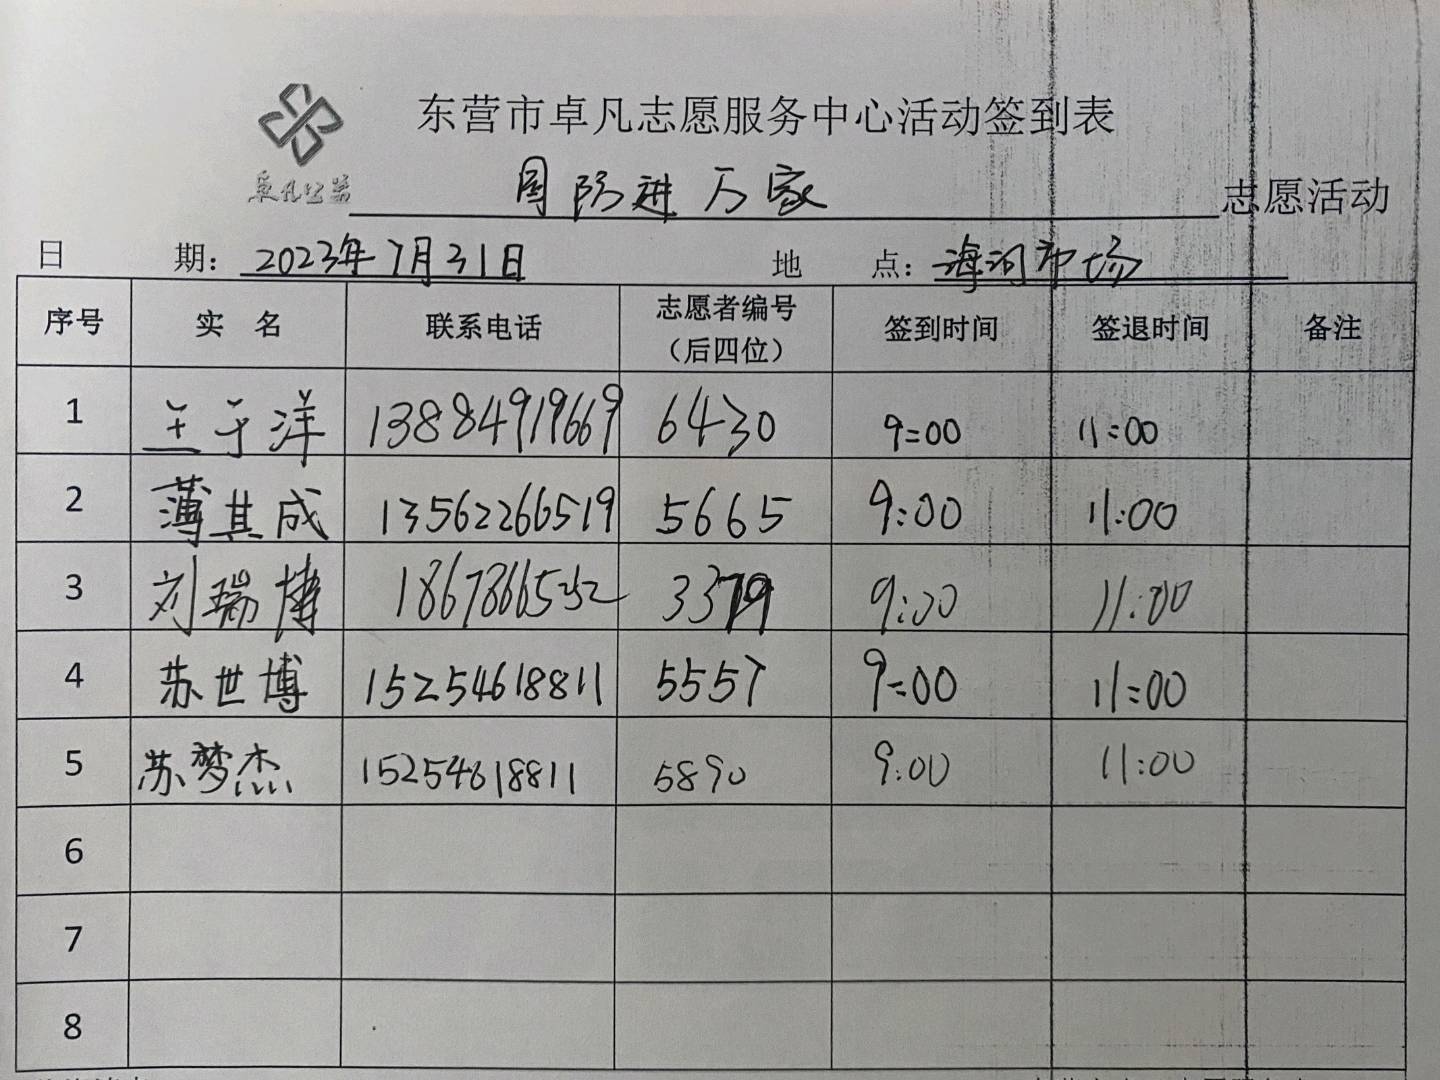 东营市卓凡志愿服务中心活动签到表
卓凡公益
国防进万家 志愿活动
日 期: 2023年7月31日 地 点: 海河市场
序号 实 名 联系电话 志愿者编号(后四位) 签到时间 签退时间 备注
1 王于洋 13884919669 6430 9:00 11:00
2 薄其成 13562266519 5665 9:00 11:00
3 刘瑞博 3379 9:00 11:00
4 苏世博 15254618811 5557 9:00 11:00
5 苏梦杰 15254618811 5890 9:00 11:00
6
7
8